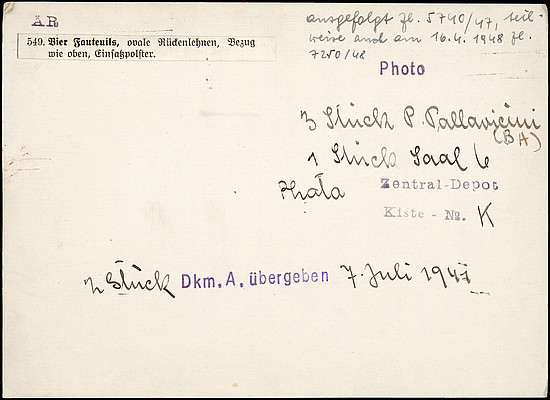 ÄR
ausgefolgt Zl. 5740/47, teil-
weise auch am 16.4. 1948 Zl.
7250/48
549. Vier Fauteuils, ovale Rückenlehnen, Bezug
wie oben, Einsatzpolster.
Photo
3 Stück P. Pallavicini
(BA)
1 Stück Saal 6
Zentral-Depot
Kiste - No. K
2 Stück Dkm. A. übergeben 7. Juli 1947